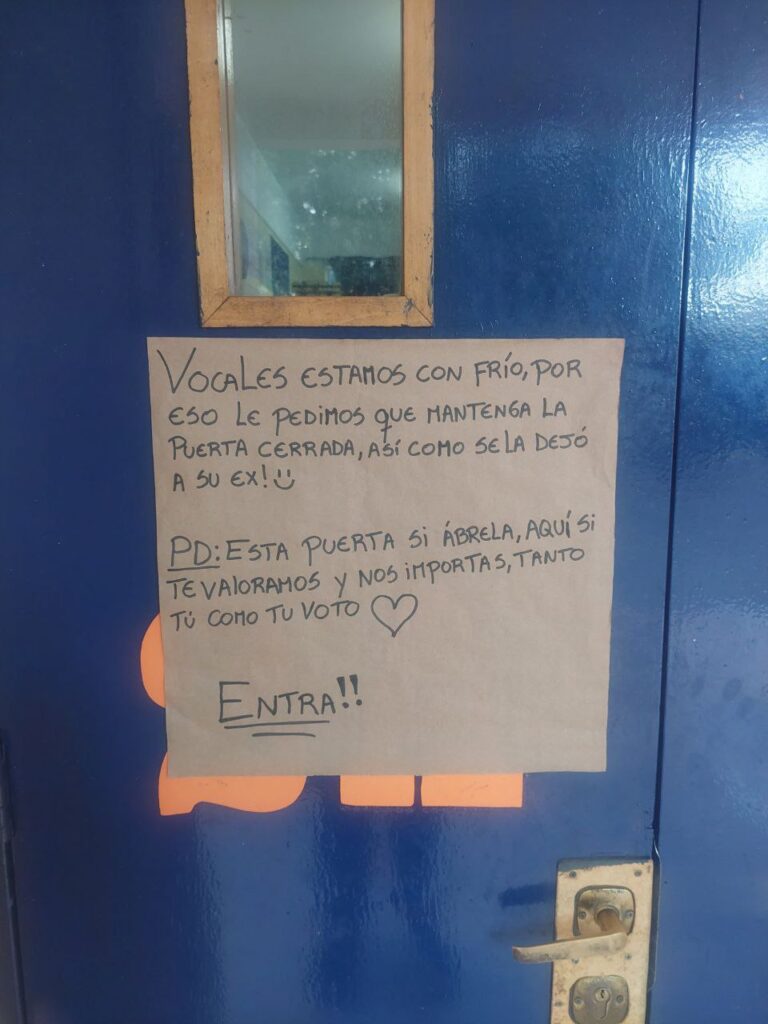 VOCALES ESTAMOS CON FRÍO, POR
ESO LE PEDIMOS QUE MANTENGA LA
PUERTA CERRADA, ASÍ COMO SE LA DEJÓ
A SU EX!
PD: ESTA PUERTA SI ÁBRELA, AQUÍ SI
TE VALORAMOS Y NOS IMPORTAS, TANTO
TÚ COMO TU VOTO
ENTRA!!